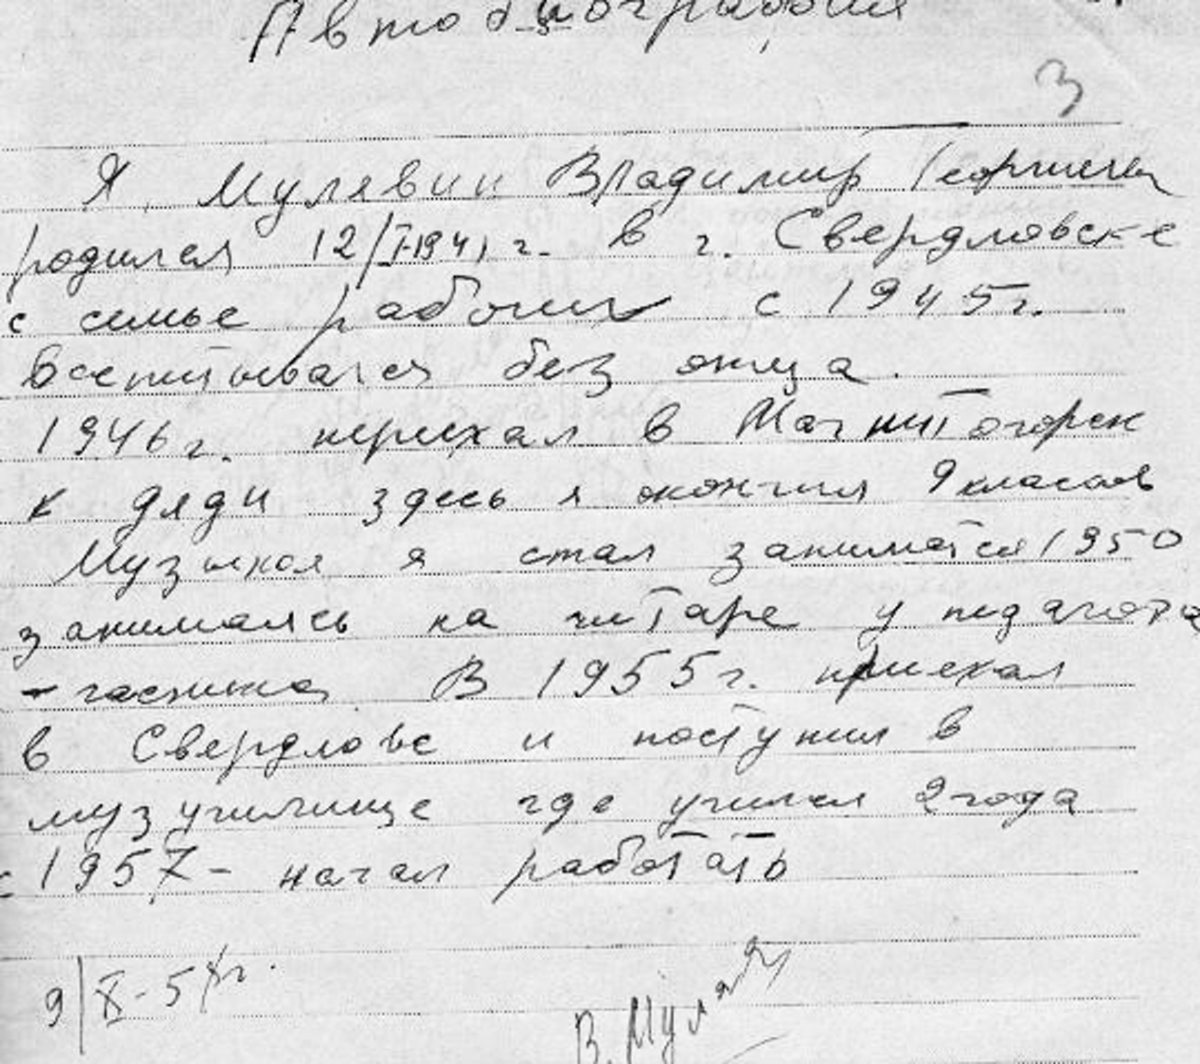 Автобиография
3
Я, Мулявин Владимир Георгиевич
родился 12/I-1941 г. в г. Свердловске
с семье рабочих с 1945г.
воспитывался без отца.
1946г. переехал в Магнитогорск
к дяди здесь я окончил 9 классов
Музыкой я стал заниматся 1950
занимаясь на гитаре у педагога
- частника В 1955г. приехал
в Свердловс и поступил в
муз училище где учился 2 года
с 1957 - начал работать
9/X-5 г.
В. Муляв